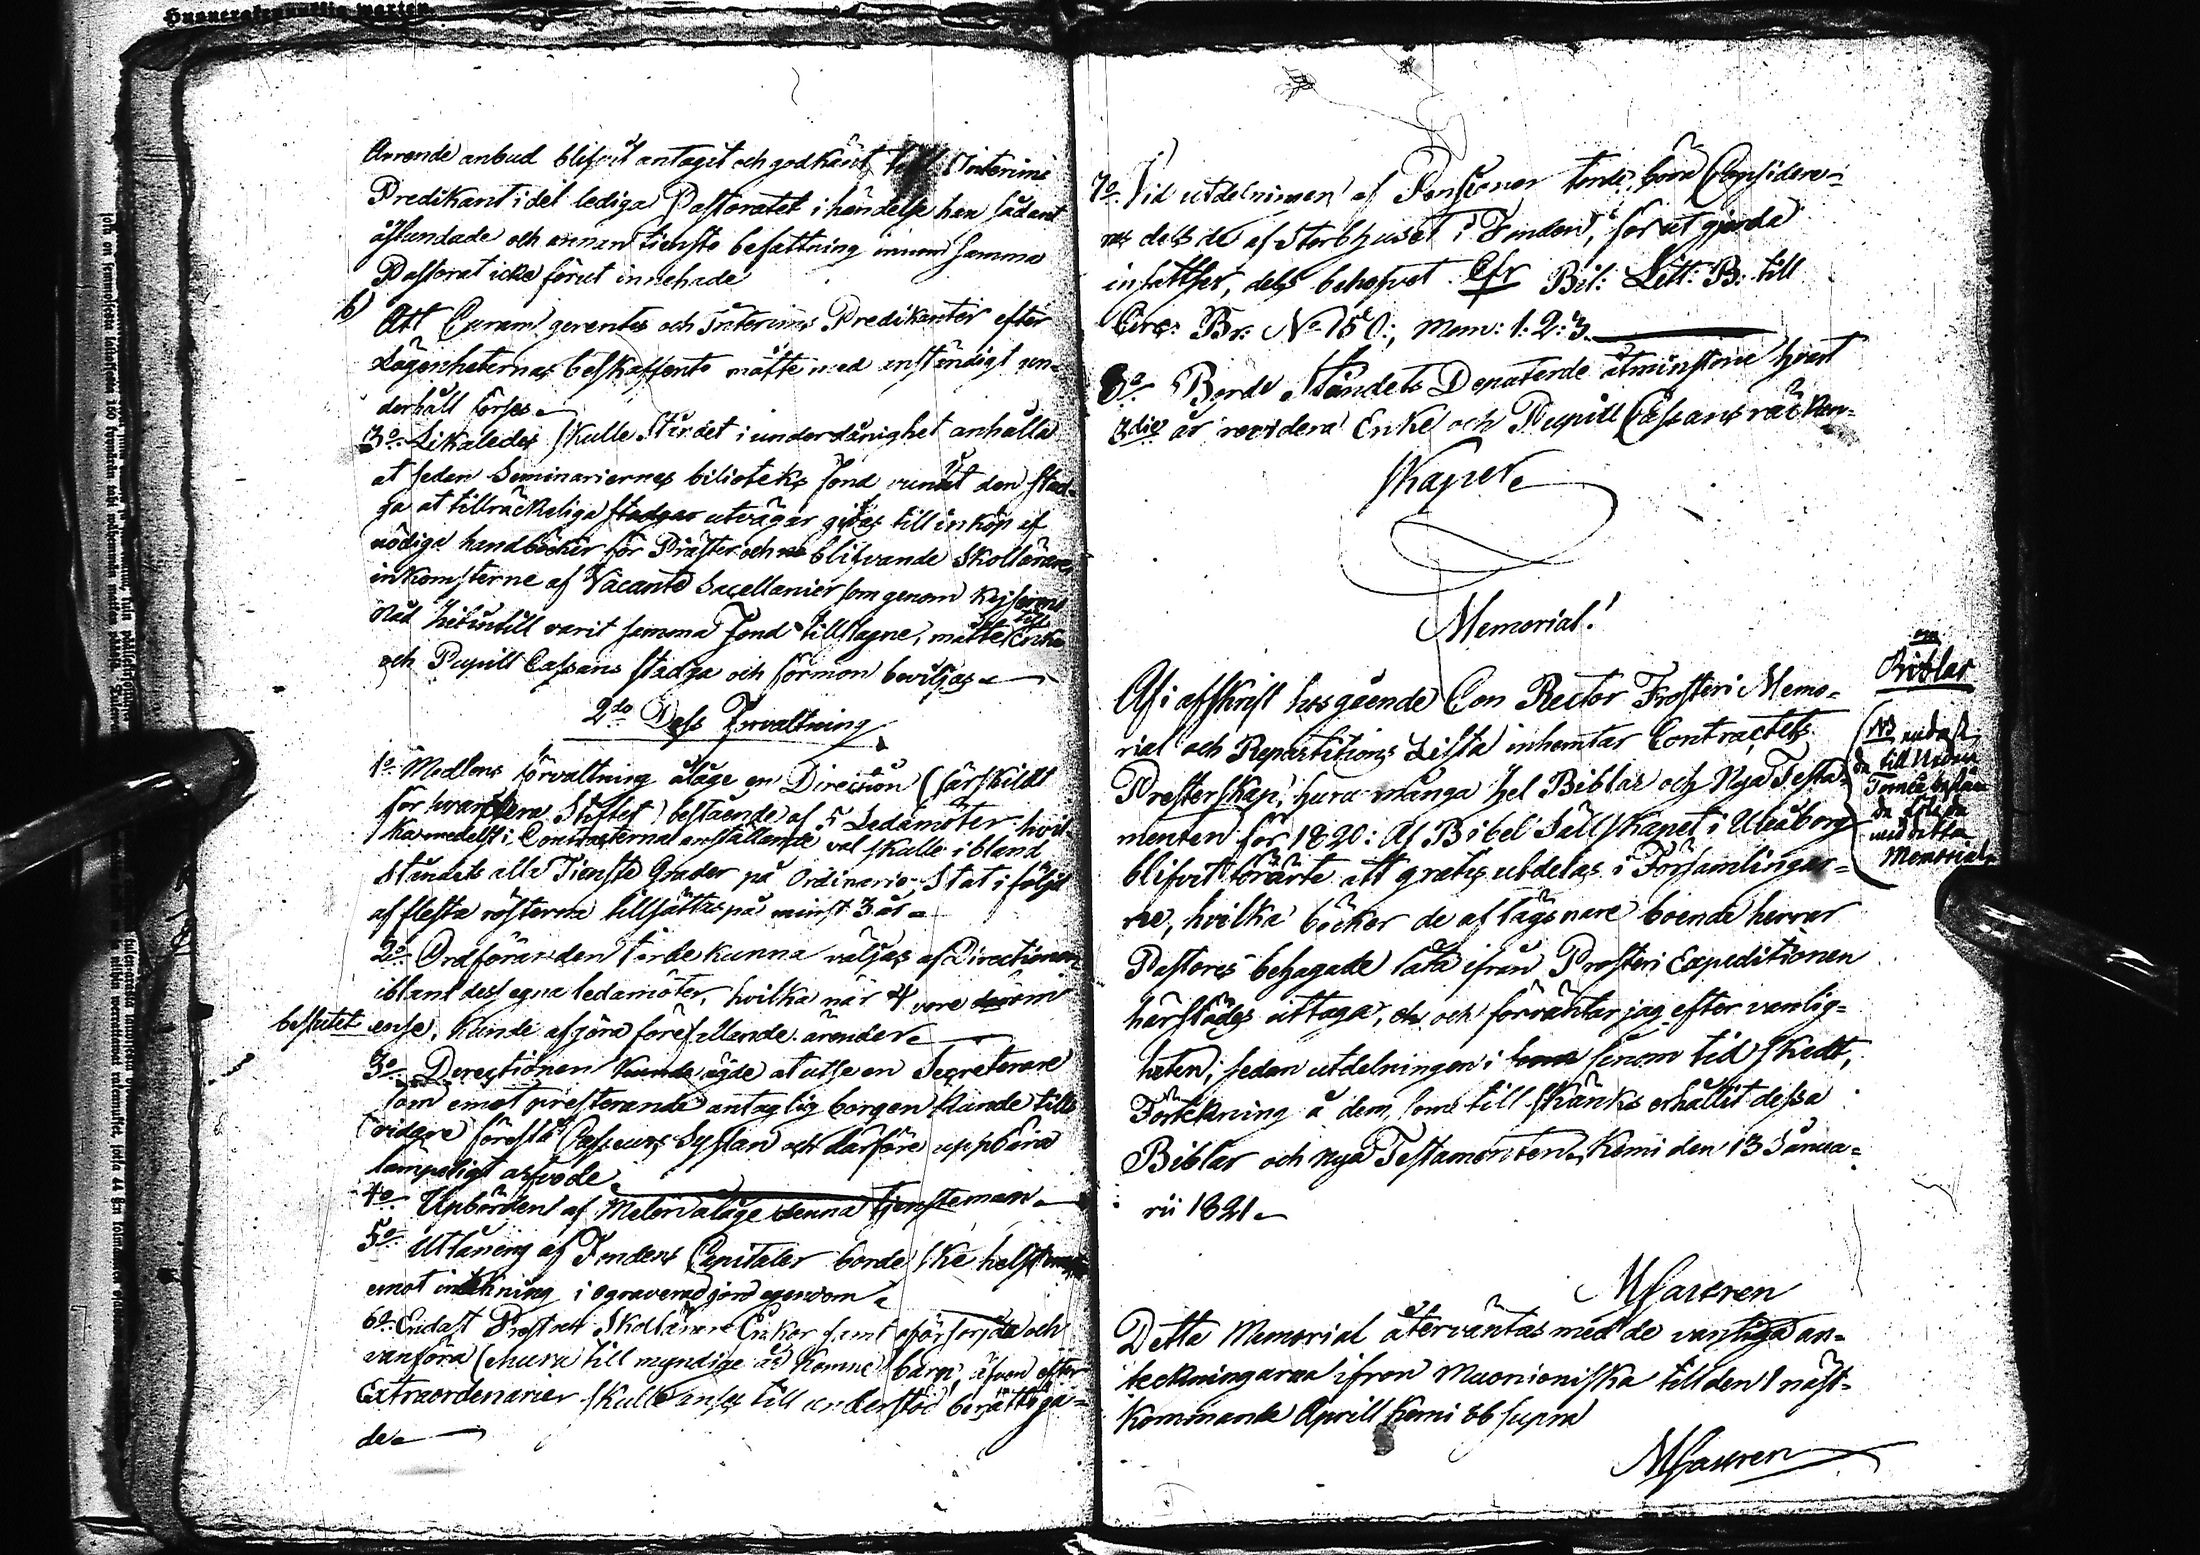 Arrende anbud blifvit antagit och godkänt, Interims
Predikant i det lediga Pastoratet i händelse han sådant
åstundade och annan tienste befattning innom samma
Pastorat icke förut innehade
b) Att Curam gerentes och Interims Predikanter efter
Lägenheternas beskaffente måtte med anständigt un-
derhåll förses
3o Likaledes skulle Ståndet i underdånighet anhålla
at sedan Seminariernes biliotheks fond vunnit den stad-
ga at tillräckeliga stadgar utvägar gifves till inköp af
nödiga handböcker för Präster och blifvande Skollärare,
inkomsterne af Vacante Sacellanier som genom Kejserens
Nåd hitintill varit samma Fond tillslagne, måtte till Enke
och Pupill Cassans stadga och förmon beviljas
2do Dess Förvaltning
1o Medlens förvaltning ålåge en Direction (särskildt
för hvardere Stiftet) bestående af 5 Ledamöter hvil-
ka medelst i Contracterna anställande val skulle ibland
Ståndets alla Tienste Grader på Ordinarie Stat i följd
af flesta rösterna tillsättas på minst 3 år
2o Ordföranden torde kunna väljas af Directionen
ibland dess egna ledamöter, hvilka när 4 vore om
beslutet ense, kunde afgöra förefallande ärender
3o Directionen kunde ägde at utse en Secreterare
som emot presterande antaglig borgen kunde till-
vidare förestå Casseurs Sysslan och därföre uppbära
lämpeligt arfvode
4o Upbörden af Medlen ålåge denna tjensteman
5o Utlåning af Fondens Capitaler borde ske helst
emot inteckning i ograverad jord egendom
6o Endast Prest och Skollärare Enkor samt oförsörjda och
vanföra (ehuru till myndige år komne) barn, äfven efter
Extraordenarier skulle anses till understöd berättiga-
de
7o Vid utdelningen af Pensioner torde böra Considere-
ras dels de af Sterbhuset i Fonden, förut gjorda
insattser, dels behofvet. Cfr Bil: Litt: B: till
Circ: Br: No 150:, Mom: 1: 2: 3.
8o Borde Ståndets Deputerde åtminstone hvart
3die år revidera Enke och Pupill Cassans räken-
skaper
Memorial!
om
Biblar
Af i afskrift hosgående Con Rector Frosteri Memo-
rial och Repartitions Lista inhemtar Contractets
Presterskap, huru många hel Biblar och Nya Testa-
menten för 1820: af Bibel Sällskapet i Uleåborg
blifvit förärte att gratis utdelas i Församlingar-
ne, hvilka böcker de aflägsnare boende herrar
Pastores behagade låta ifrån Prosteri Expeditionen
härstädes uttaga, och förväntar jag efter vanlig-
heten, sedan utdelningen i sinom tid skedt,
Förtekning å dem, som till skänks erhållit dessa
Biblar och nya Testamenten. Kemi den 13 Janua-
rii 1821
(NB endast
de till Nedra
Torneå bestäm
de följde
med detta
Memorial
Detta Memorial återväntas med de vanliga an-
teckningarna ifron Muonioniska till den 1 näst-
kommande Aprill Kemi ut supra